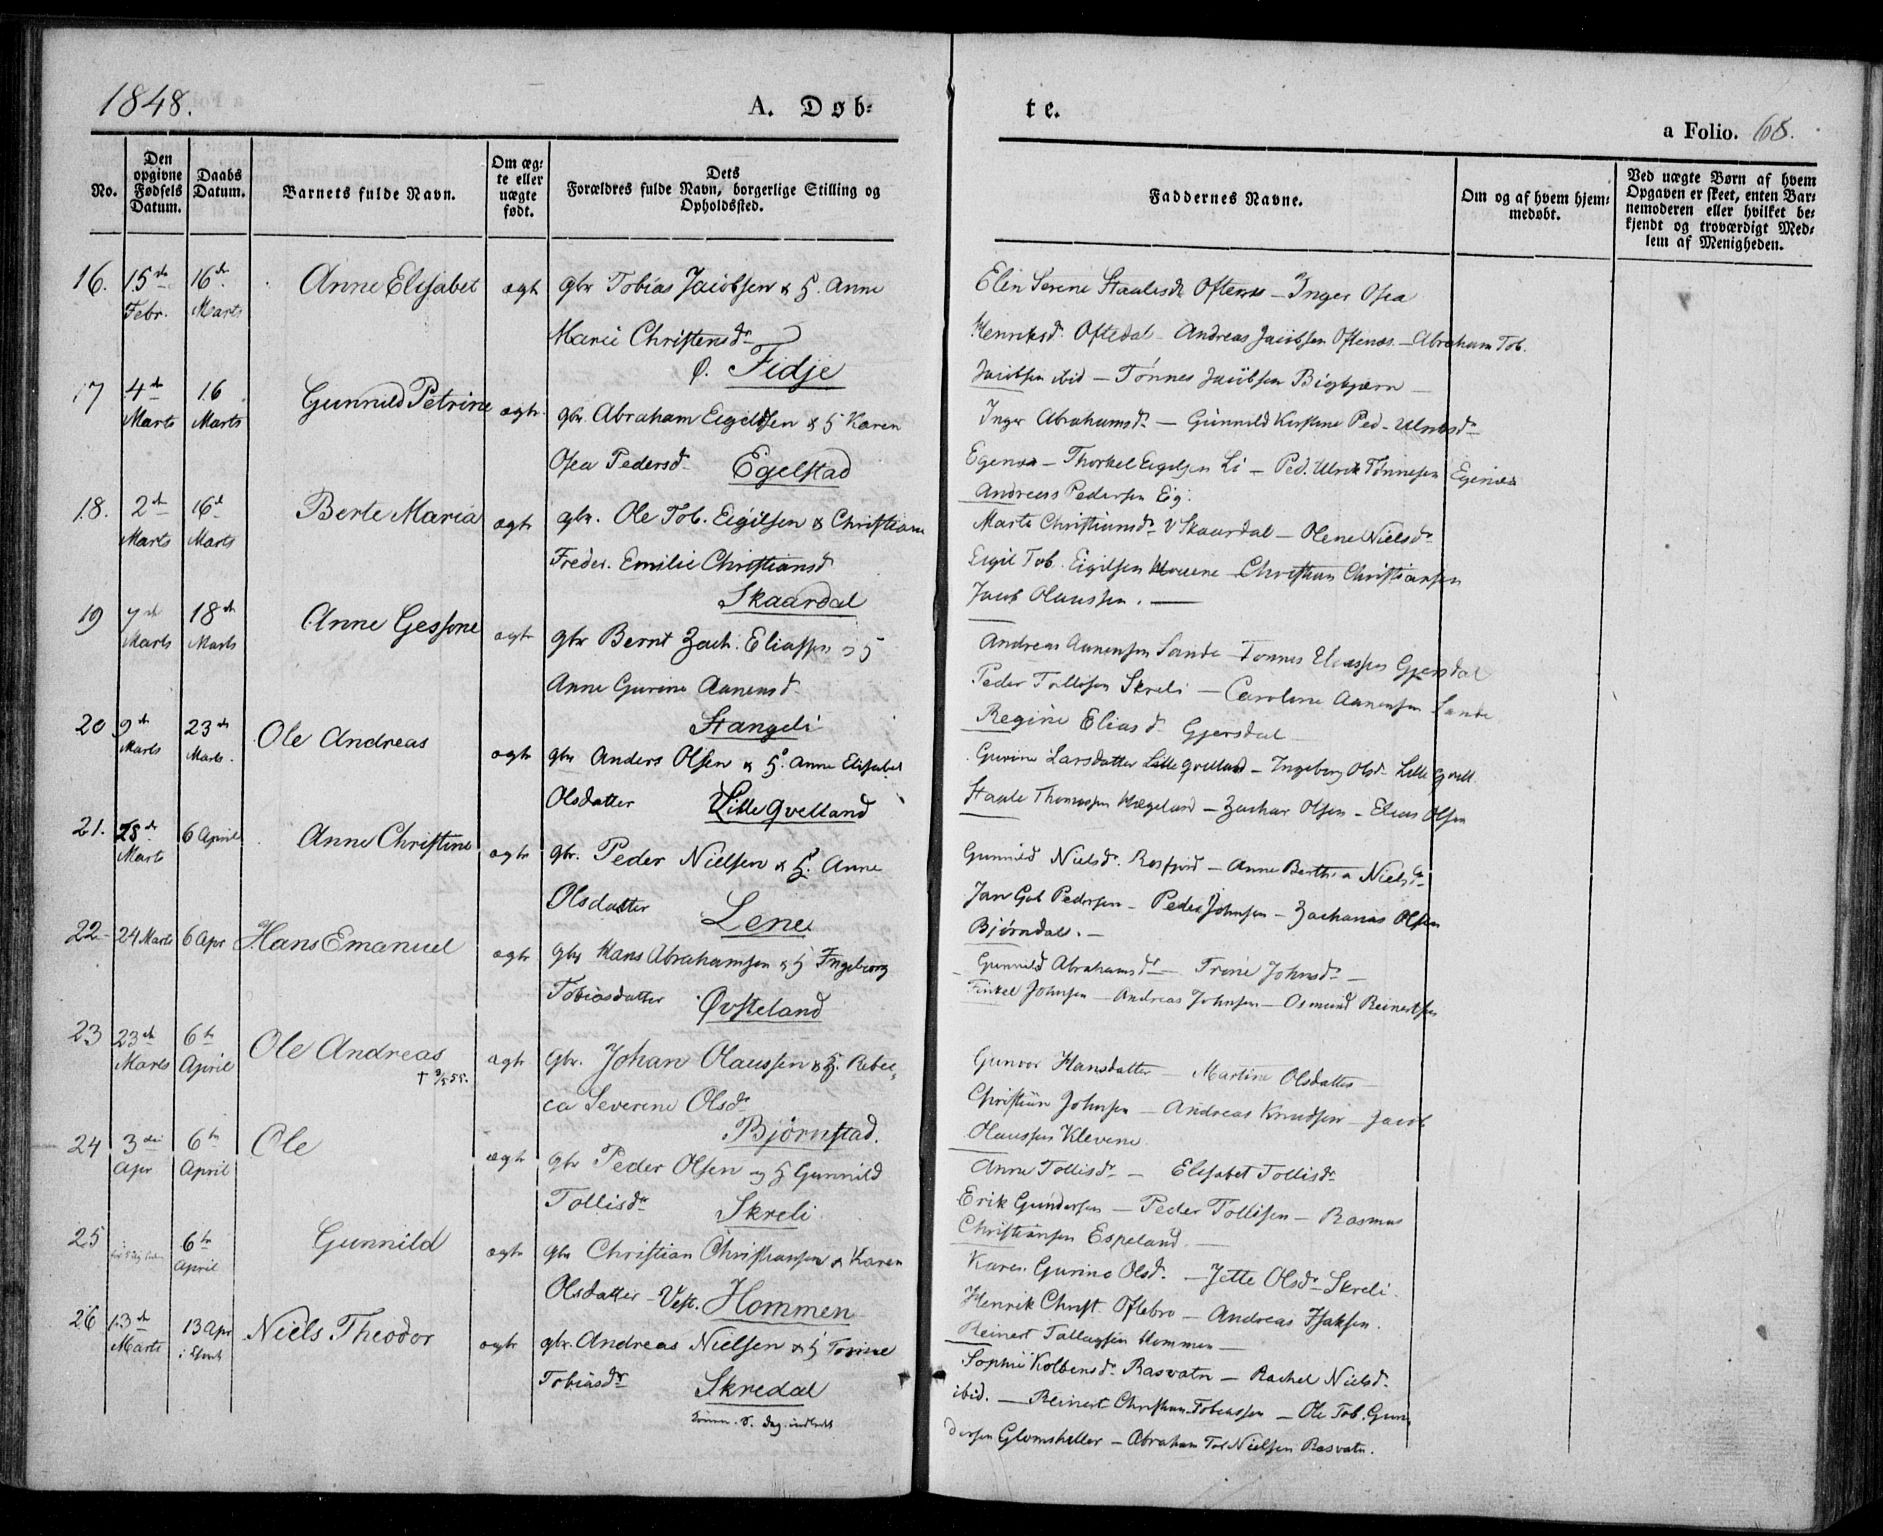 1848.
A. Døb=
te.
a Folio. 68.
No.
Den opgivne Fødsels Datum.
Daabs Datum.
Barnets fulde Navn.
Om ægte eller uægte født.
Dets Forældres fulde Navn, borgerlige Stilling og Opholdssted.
Faddernes Navne.
Om og af hvem hjemmedøbt.
Ved uægte Børn af hvem Opgaven er skeet, enten Barnemoderen eller hvilket bekjendt og troværdigt Medlem af Menigheden.
16. 15de Febr. 16de Marts Anne Elisabet ægte gbr Tobias Jacobsen & H. Anne
Marie Christensdr
Ø. Fidje
Elen Serene Staalesdr Oftenæs - Inger Osea
Henriksdr. Oftedal - Andreas Jacobsen Oftenæs - Abraham Tob.
Jacobsen ibid - Tønnes Jacobsen Bigbjærn
17 4de Marts 16 Marts Gunnild Petrine ægte gbr. Abraham Eigelsen & H Karen
Osea Pedersd. Egelstad
Inger Abrahamsdr - Gunnild Kirstine Ped. Ulriksdr
Egenæs - Thorkel Eigelsen Li - Ped. Ulrik Tønnesen Egenæs
Andreas Pedersen Eig.
18. 2de Marts 16d Marts Berte Maria ægte gbr. Ole Tob. Eigilsen & Christiane
Freder. Emilie Christiansd
Skaardal
Marte Christiansdr V Skaardal - Olene Nielsdr
Eigil Tob. Eigilsen - Christian Christiansen
Jacob Olaussen.
19 7de Marts 18de Marts Anne Gessine ægte gbr Bernt Zach. Eliassen og H
Anne Gurine Aanensd.
Stangeli
Andreas Aanensen Sande - Tønnes Eliassen Gjersdal
Peder Tollisen Skreli - Caroline Aanensen Sande
Regine Eliasd Gjersdal
20 9de Marts 23de Marts. Ole Andreas ægte gbr Anders Olsen & H. Anne Elisabet
Olsdatter Lille Qvelland
Gurine Larsdatter Lille Qvelland - Ingeborg Olsdr Lille Qvell.
Staale Thomassen Hægeland - Zachar Olsen - Elias Olsen
21. 25de Marts 6 April Anne Christine ægte gbr. Peder Nielsen & H. Anne
Olsdatter Lene
Gunnild Nielsdr. Rosfjord - Anne Berthea Nielsdr
Jan Gab Pedersen - Peder Johnsen - Zacharias Olsen
Bjørndal. -
22 24 Marts 6 Apr Hans Emanuel ægte gbr Hans Abrahamsen & H Ingeborg
Tobiasdatter Øvsteland
Gunnild Abrahamsdr - Trine Johnsdr -
Tinkel Johnsen - Andreas Johnsen - Osmund Reinertsen
23 23de Marts 6te April Ole Andreas ægte Gbr. Johan Olaussen & H. Rebec=
ca Severine Olsdr
Bjørnstad.
Gunvor Hansdatter - Martine Olsdatter -
Christian Johnsen - Andreas Knudsen - Jacob
Olaussen Klevene
24 3die Apr 6te April Ole ægte gbr Peder Olsen og H Gunnild
Tollisdr Skreli
Anne Tollisdr - Elisabet Tollisdr
Erik Gundersen - Peder Tollisen - Rasmus
Christiansen Espeland. -
25 6te April Gunnild ægte gbr Christian Christiansen & Karen
Olsdatter - Vest. Hommen
Karen Gurine Olsd. - Jette Olsdr Skreli.
Henrik Christ. Oftebro - Andreas Isaksen.
Reinert Hommen -
26 13de Marts 13 Apr Niels Theodor ægte gbr. Andreas Nielsen & H Torine
Tobiasdr Skredal
Sophie Kolbensdr Rasvatn - Rachel Nielsdr
ibid. - Reinert Christian Tobiassen - Ole Tob. Gun=
dersen Glomsheller - Abraham Tob Nielsen Rasvatn.